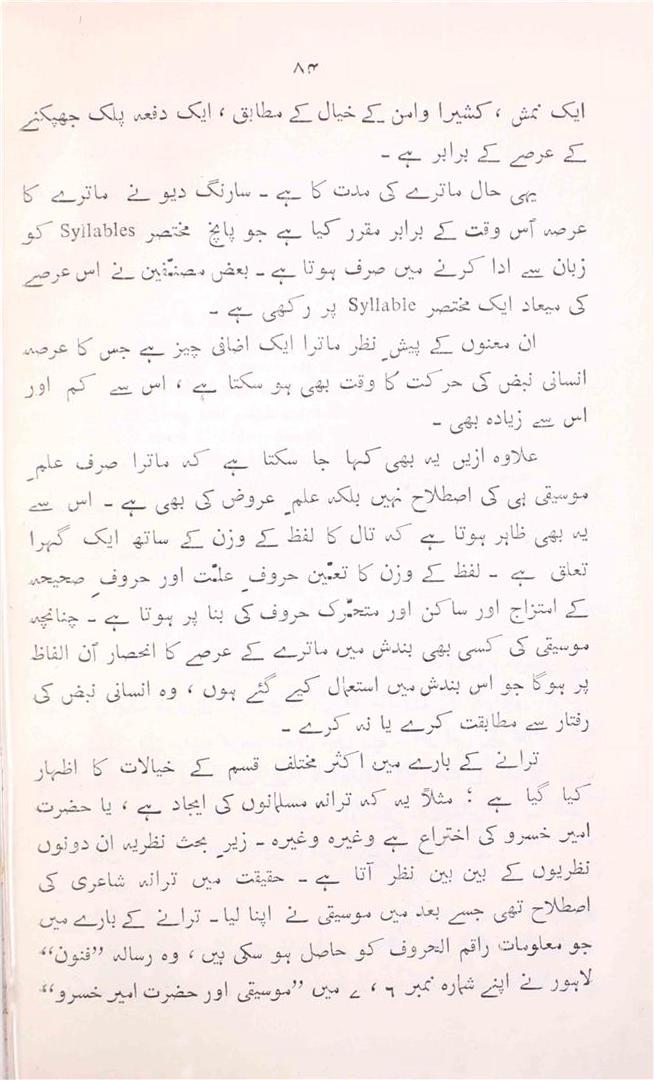 ۸۴
ایک نمش ، کشیرا وامن کے خیال کے مطابق ، ایک دفعہ پلک جھپکنے
کے عرصے کے برابر ہے ۔
یہی حال ماترے کی مدت کا ہے ۔ سارنگ دیو نے ماترے کا
عرصہ اُس وقت کے برابر مقرر کیا ہے جو پانچ مختصر Syllables کو
زبان سے ادا کرنے میں صرف ہوتا ہے ۔ بعض مصنّفین نے اس عرصے
کی میعاد ایک مختصر Syllable پر رکھی ہے ۔
ان معنوں کے پیشِ نظر ماترا ایک اضافی چیز ہے جس کا عرصہ
انسانی نبض کی حرکت کا وقت بھی ہو سکتا ہے ، اس سے کم اور
اس سے زیادہ بھی ۔
علاوہ ازیں یہ بھی کہا جا سکتا ہے کہ ماترا صرف علمِ
موسیقی ہی کی اصطلاح نہیں بلکہ علمِ عروض کی بھی ہے ۔ اس سے
یہ بھی ظاہر ہوتا ہے کہ تال کا لفظ کے وزن کے ساتھ ایک گہرا
تعلق ہے ۔ لفظ کے وزن کا تعیّن حروفِ علّت اور حروفِ صحیحہ
کے امتزاج اور ساکن اور متحرّک حروف کی بنا پر ہوتا ہے ۔ چنانچہ
موسیقی کی کسی بھی بندش میں ماترے کے عرصے کا انحصار اُن الفاظ
پر ہوگا جو اس بندش میں استعمال کیے گئے ہوں ، وہ انسانی نبض کی
رفتار سے مطابقت کرے یا نہ کرے ۔
ترانے کے بارے میں اکثر مختلف قسم کے خیالات کا اظہار
کیا گیا ہے ؛ مثلاً یہ کہ ترانہ مسلمانوں کی ایجاد ہے ، یا حضرت
امیر خسرو کی اختراع ہے وغیرہ وغیرہ۔ زیرِ بحث نظریہ ان دونوں
نظریوں کے بین بین نظر آتا ہے ۔ حقیقت میں ترانہ شاعری کی
اصطلاح تھی جسے بعد میں موسیقی نے اپنا لیا۔ ترانے کے بارے میں
جو معلومات راقم الحروف کو حاصل ہو سکی ہیں ، وہ رسالہ ”فنون“
لاہور نے اپنے شمارہ نمبر ۶ ، ۷ میں ”موسیقی اور حضرت امیر خسرو“